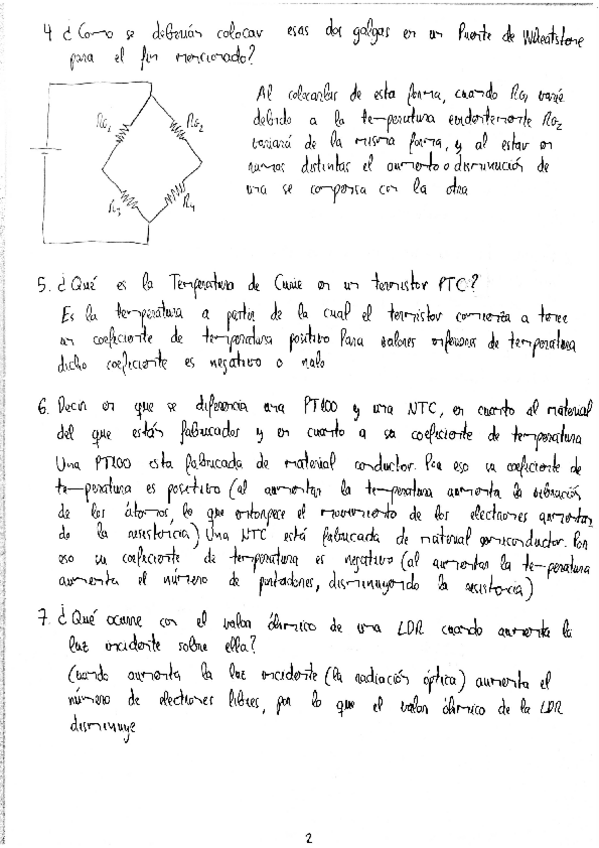 4 ¿Como se deberían colocar esas dos galgas en un Puente de Wheatstone
para el fin mencionado?
RG1
RG2
R3
R4
Al colocarlas de esta forma, cuando RG1 varíe
debido a la temperatura evidentemente RG2
variará de la misma forma, y al estar en
ramas distintas el aumento o disminución de
una se compensa con la otra
5. ¿Qué es la Temperatura de Curie en un termistor PTC?
Es la temperatura a partir de la cual el termistor comienza a tener
un coeficiente de temperatura positivo Para valores inferiores de temperatura
dicho coeficiente es negativo o nulo
6. Decir en que se diferencia una PT100 y una NTC, en cuanto al material
del que están fabricados y en cuanto a su coeficiente de temperatura
Una PT100 esta fabricada de material conductor. Por eso su coeficiente de
temperatura es positivo (al aumentar la temperatura aumenta la vibración
de los átomos, lo que entorpece el movimiento de los electrones aumentando
la resistencia) Una NTC está fabricada de material semiconductor. Por
eso su coeficiente de temperatura es negativo (al aumentar la temperatura
aumenta el número de portadores, disminuyendo la resistencia)
7. ¿Qué ocurre con el valor óhmico de una LDR cuando aumenta la
luz incidente sobre ella?
Cuando aumenta la luz incidente (la radiación óptica) aumenta el
número de electrones libres, por lo que el valor óhmico de la LDR
disminuye
2